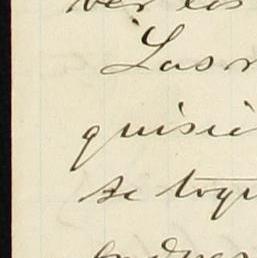 ver los
Las r
quisie
se toqu